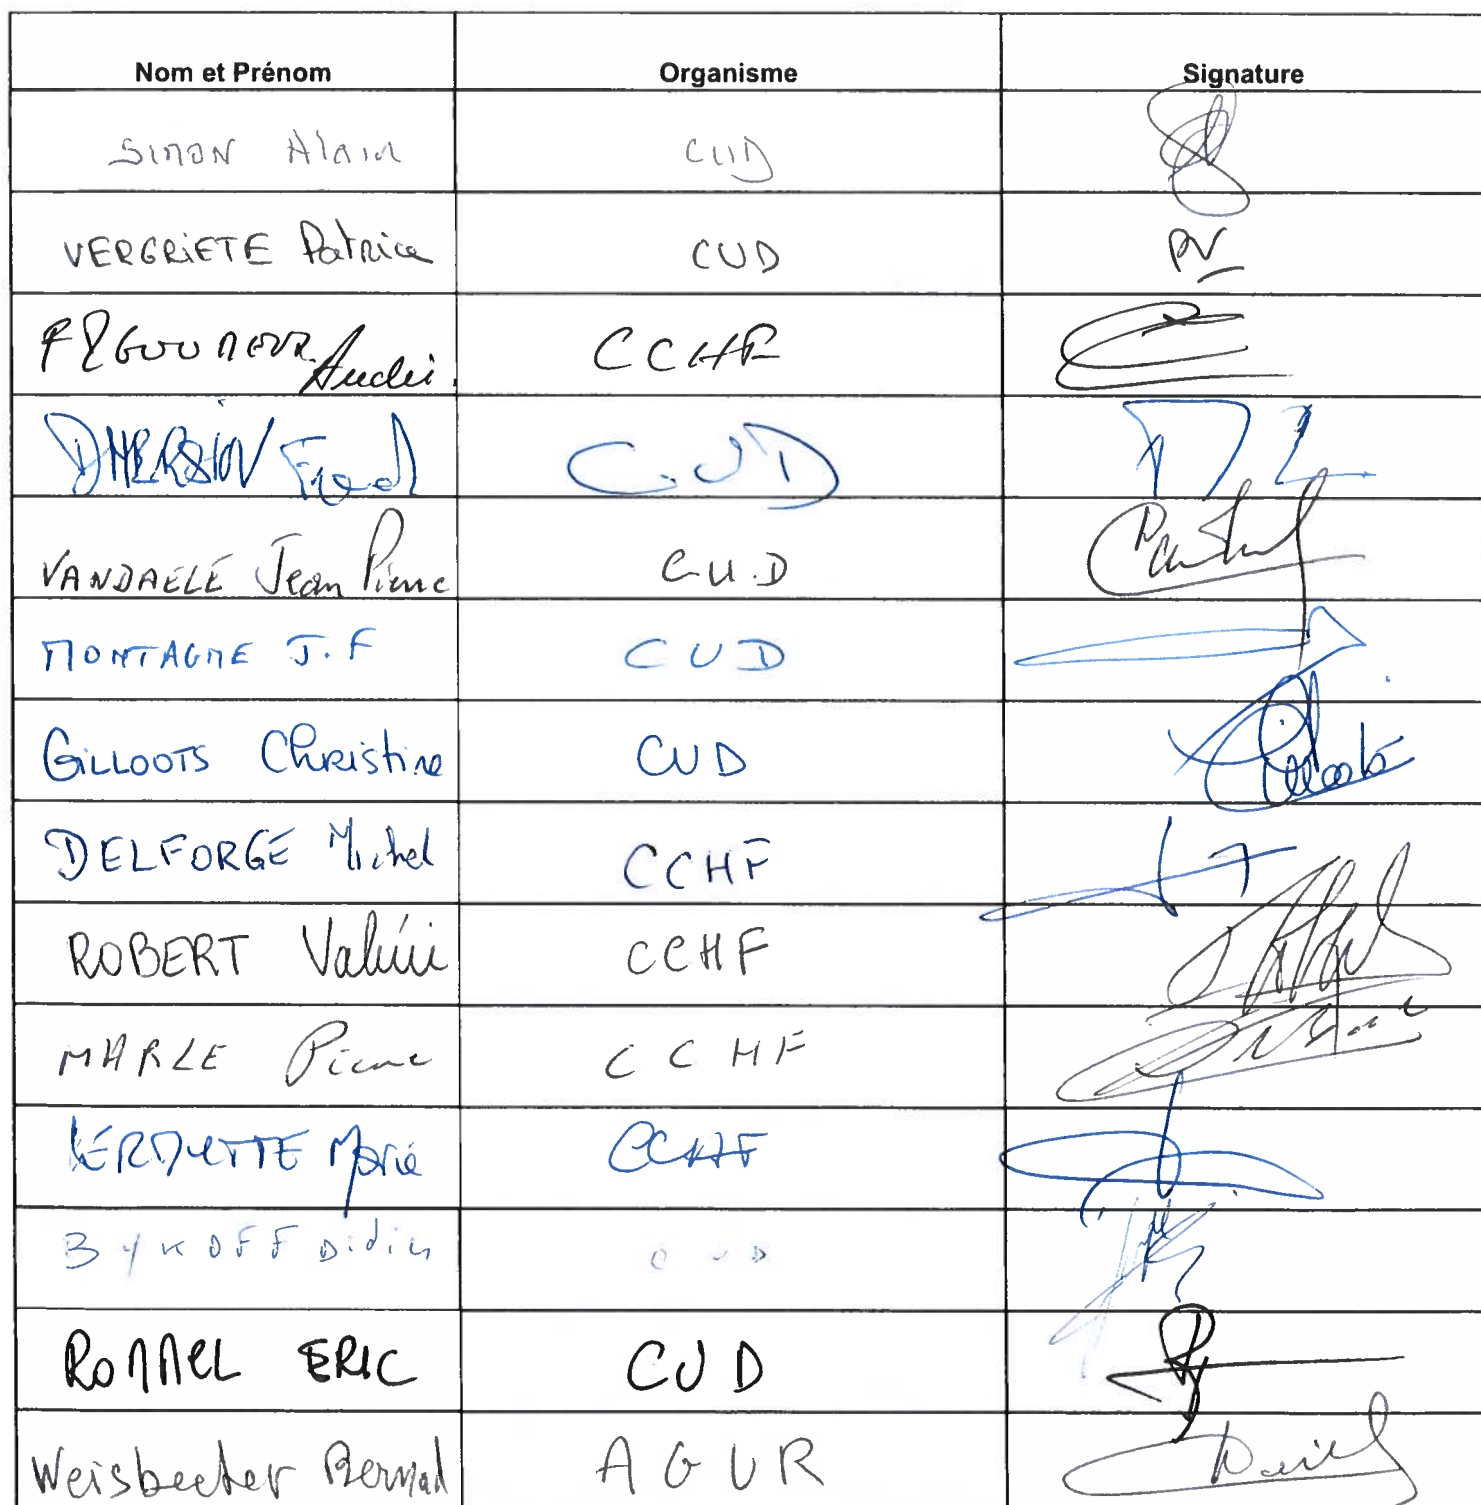 Nom et Prénom Organisme Signature
SIMON Alain CUD
VERGRIETE Patrice CUD PV
FIGOUREUX André CCHF
DHERSIN Franck C.U.D
VANDAELE Jean Pierre C.U.D
MONTAGNE J.F CUD
GILLOOTS Christine CUD
DELFORGE Michel CCHF
ROBERT Valérie CCHF
MARLE Pierre CCHF
Marie CCHF
BYKOFF Didier CUD
ROMMEL ERIC CUD
Weisbecker Bernard AGUR